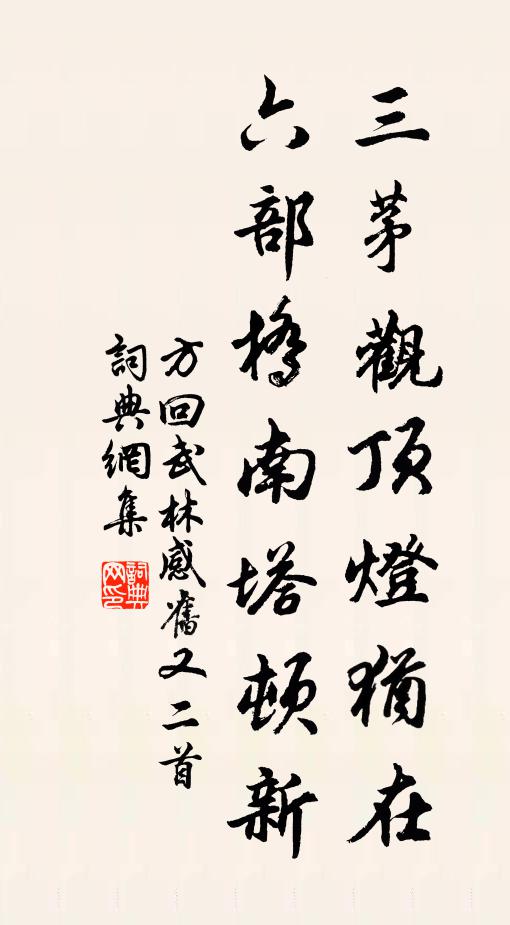 三茅觀頂燈猶在
六部橋南塔頓新
方回武林感舊又二首
詞典網集
詞典
网印